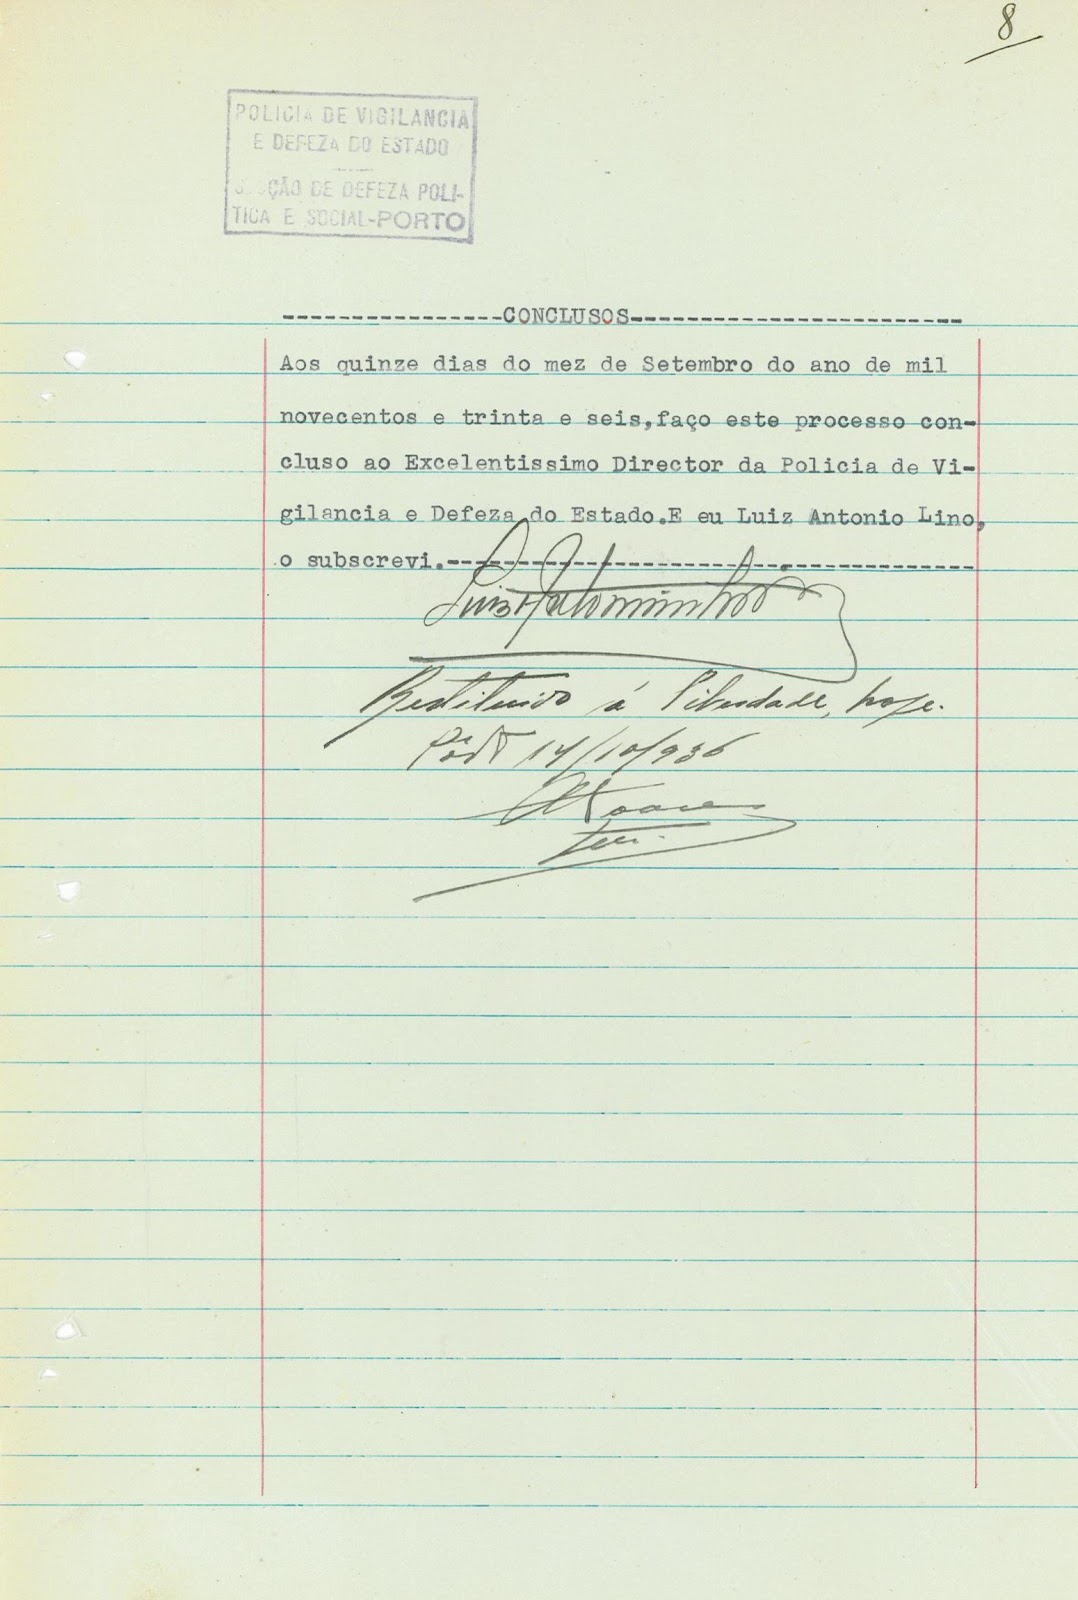 8
POLICIA DE VIGILANCIA
E DEFEZA DO ESTADO
SECÇÃO DE DEFEZA POLI-
TICA E SOCIAL-PORTO
----------------CONCLUSOS------------------------
Aos quinze dias do mez de Setembro do ano de mil
novecentos e trinta e seis,faço este processo con-
cluso ao Excelentissimo Director da Policia de Vi-
gilancia e Defeza do Estado.E eu Luiz Antonio Lino,
o subscrevi.--------------------------------------
Luiz Antonio Lino
Restituido á liberdade, hoje.
14/10/936